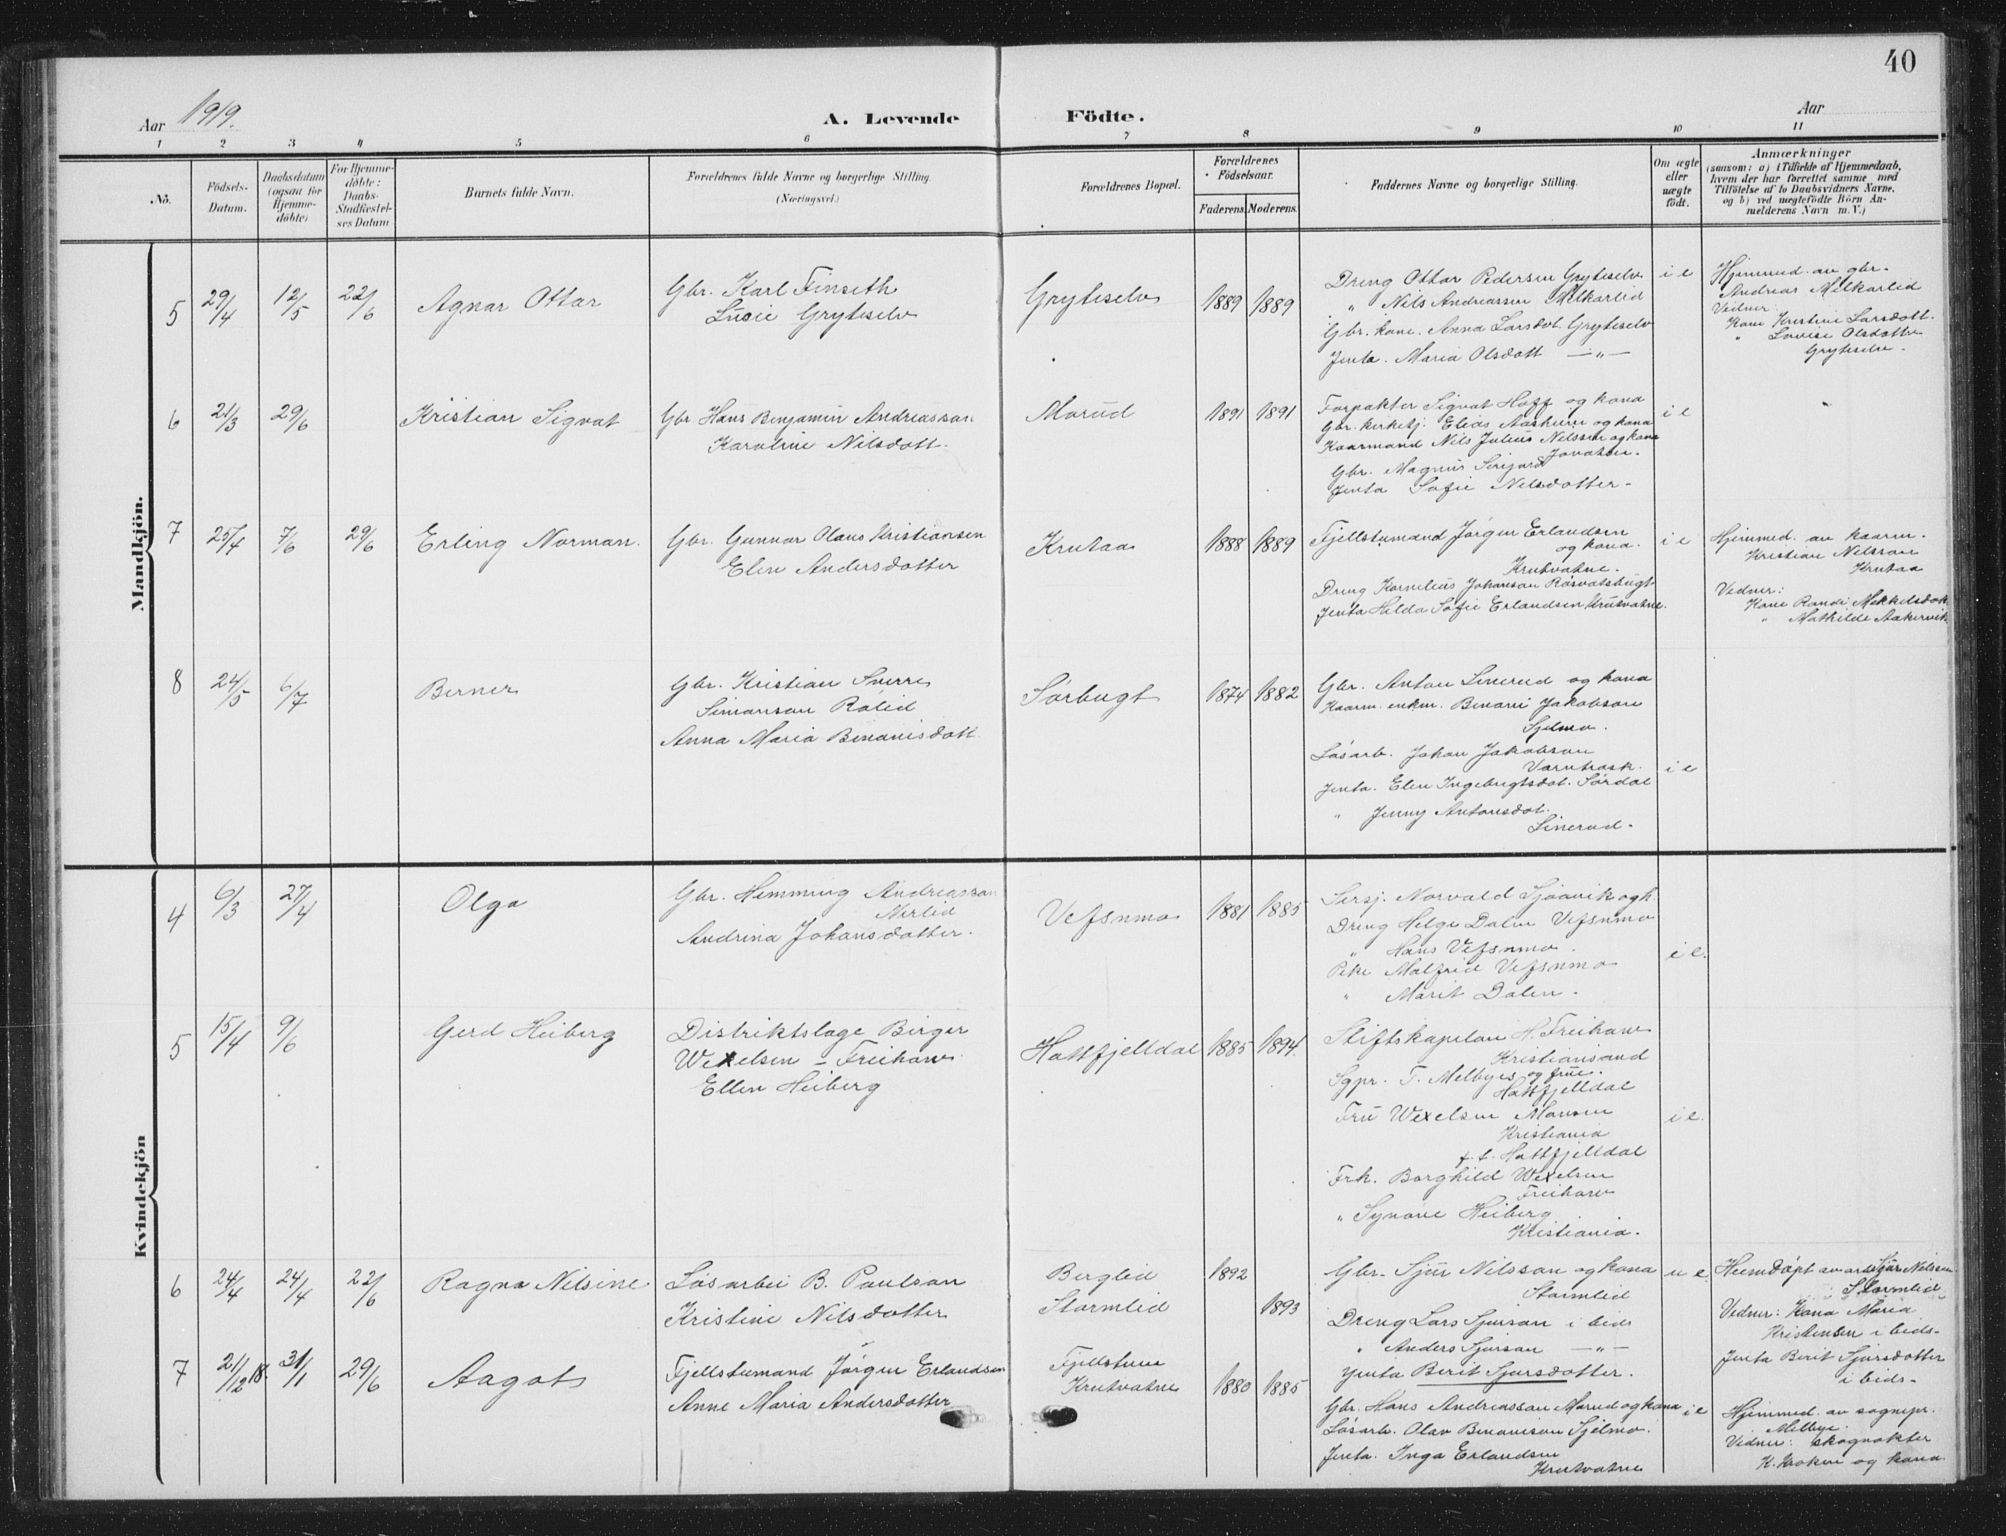 40
Aar 1919.
A. Levende Födte.
Aar
1 2 3 4 5 6 7 8 9 10 11
No.
Födsels-Datum.
Daabsdatum (ogsaa for Hjemme-döbte)
For Hjemme-döbte: Daabs-Stadfæstel-ses Datum
Barnets fulde Navn.
Forældrenes fulde Navne og borgerlige Stilling.
(Næringsvei.)
Forældrenes Bopæl.
Forældrenes Födselsaar.
Faderens. Moderens.
Faddernes Navne og borgerlige Stilling.
Om ægte eller uægte födt.
Anmærkninger
(saasom: a) i Tilfælde af Hjemmedaab,
hvem der har forrettet samme, med
Tilföielse af to Daabsvidners Navne,
og b) ved uægtefödte Börn An-
melderens Navn m. V.)
Mandkjön.
5 29/4 12/5 22/6 Agnar Ottar
Gbr. Karl Finseth
Lusie Grytiselv
Grytiselv 1889 1889
Dreng Ottar Pedersen Grytiselv
" Nils Andreassen Melkarlid
Gbr. kone. Anna Larsdot. Grytiselv
Jenta. Maria Olsdott —"—
i e
Hjemmed. av gbr.
Andreas Melkarlid
Vedner:
Kone Kristine Larsdott.
" Lovise Olsdotter
Grytiselv.
6 21/3 29/6 Kristian Sigvat
Gbr Hans Benjamin Andreassan
Karoline Nilsdott.
Marud 1891 1891
Forpakter Sigvat Hoff og kona
Gbr. kirketj. Elias Aashurn og kona
Kaarmand Nils Julius Nilssen og kona
Jovatn.
Gbr. Magnus
Jenta Sofie Nilsdotter.
i e
7 25/4 7/6 29/6 Erling Norman.
Gbr. Gunnar Olaus Kristiansen
Elen Andersdotter
Krutaa 1888 1889
Fjellstumand Jörgen Erlandsen
og kona.
Krutvatne.
Dreng Kornelius Johansan Rösvatsbugt
Jenta Hilda Sofie Erlandsen Krutvatne.
i e
Hjemmed. av kaarm.
Kristian Nilssan
Krutaa
Vedner:
Kone Randi Mekkelsdott
" Mathilde Aakervik
8 24/5 6/7 Berner
Gbr. Kristian Snerre
Simonsan Rolid
Anna Maria Benonisdott.
Sörbugt 1874 1882
Gbr. Anton Linerud og kona
Kaarm. enkm. Benoni Jakobsan
Sjelmo.
Lösarb. Johan Jakobsan
Varntresk.
Jenta. Elen Ingebrigtsdot. Sördal
" Jenny Antonsdot.
Linerud.
i e
Kvindekjön
4 6/3 27/4 Olga
Gbr. Hemming Andreassan
Nerlid
Andrina Johansdotter.
Vefsnmo 1881 1885
Sersj. Norvald Sjåavik og h.
Dreng Helge Dalen Vefsnmo
" Hans Vefsnmo.
Pike Malfrid Vefsnmo
" Marit Dalen.
i e.
5 15/4 9/6 Gerd Heiberg
Distriktslæge Birger
Wexelsen - Freihow.
Ellen Heiberg
Hattfjelldal 1885 1894.
Stiftskapelan H. Freihow
Kristiansand
Sgpr. T. Melbyes og frue.
Hattfjelldal
Fru Wexelsen Monsen
Kristiania
f. t. Hattfjelldal
Frk. Borghild Wexelsen
Freihow
" Synove Heiberg
Kristiania.
i e.
6 24/4 24/4 22/6 Ragna Nilsine
Lösarbei B. Paulsan
Kristine Nilsdotter
Berglid 1892
Stormlid 1893
Gbr. Sjur Nilssan og kona
Stormlid
Dreng Lars Sjursan i beds
" Anders Sjursan —"—
Jenta Berit Sjursdotter.
u e
Heimdöpt av arb Sjur Nilssen
Stormlid
Vedner: Kona Maria
Kristensen i beds.
Jenta Berit Sjursdotter
i beds.
7 21/12 18. 31/1 29/6 Aagot
Fjellstumand Jörgen Erlandsen
Anne Maria Andersdotter
Fjellstuen
Krutvatne 1880 1885
Gbr. Hans Andreassan Marud og kona
Lösarb. Olav Benonisen Sjelmo.
Jenta. Inga Erlandsen
Krutvatne
i e
Hjemmed. av sognepr.
Melbye.
Vedner: skogvokter
K. Kroken og kona.